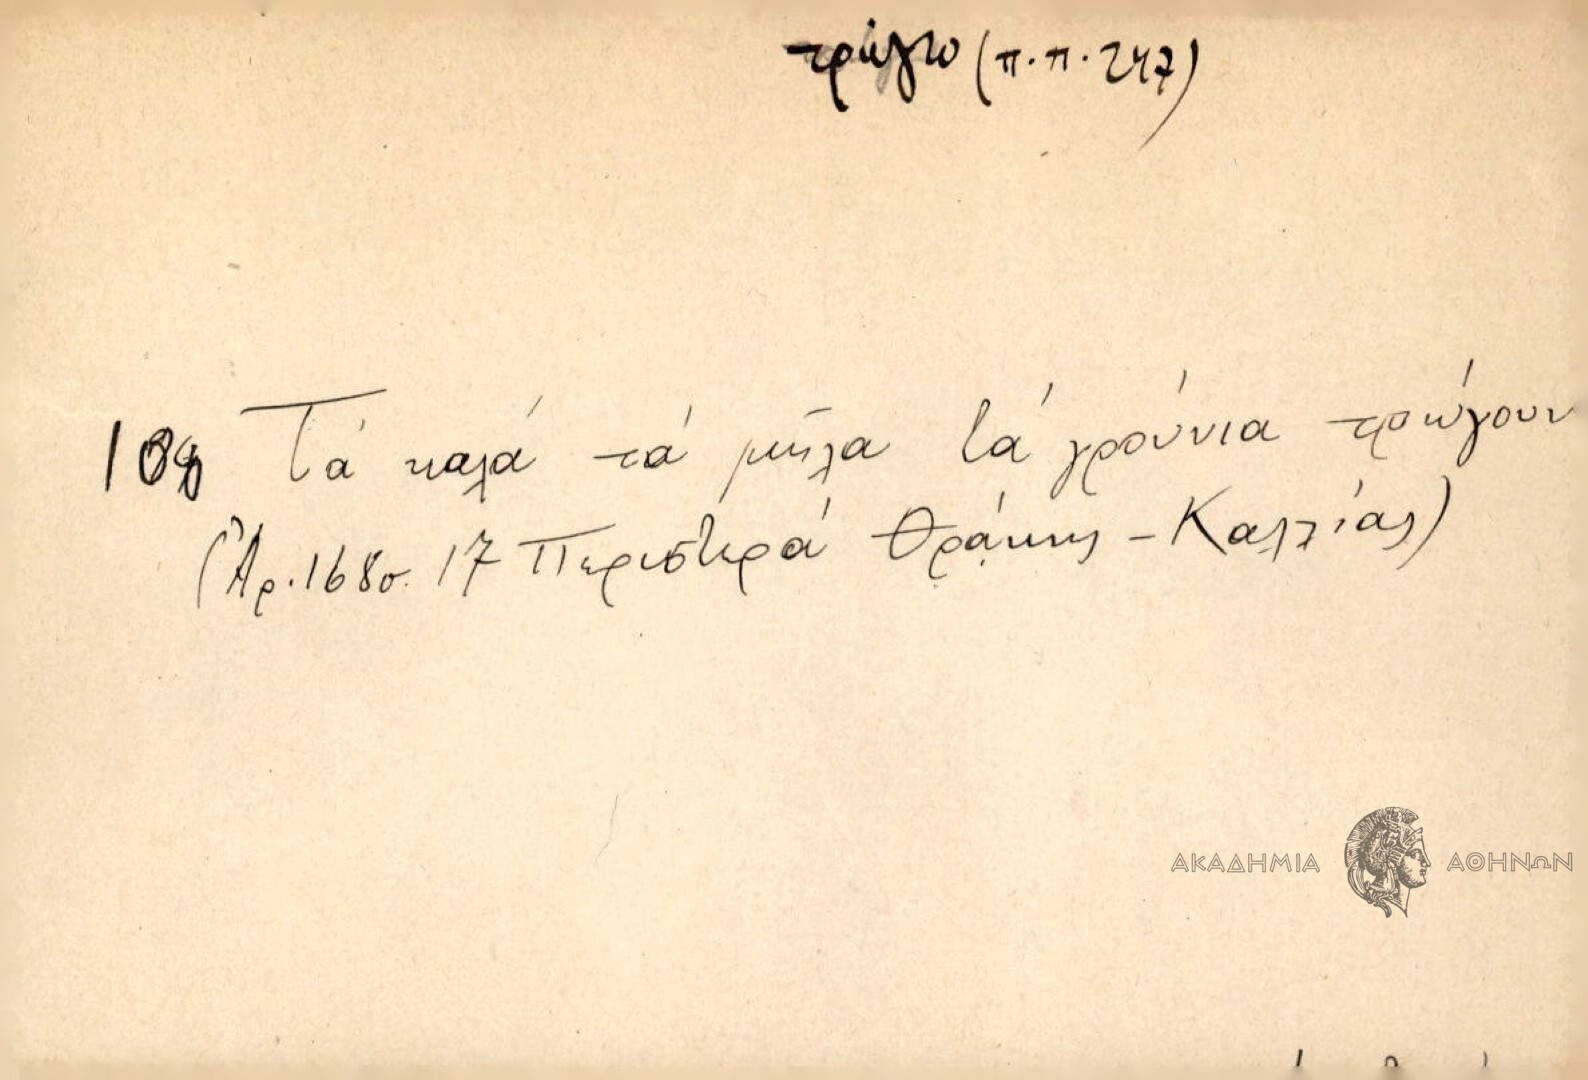 τρώγω (π.π. 247)
Τά καλά τά μῆλα τά γρούνια τρώγουν
(Ἀρ. 168 σ. 17 Περιστερά Θράκης - Καλλίας)
ΑΚΑΔΗΜΙΑ ΑΘΗΝΩΝ